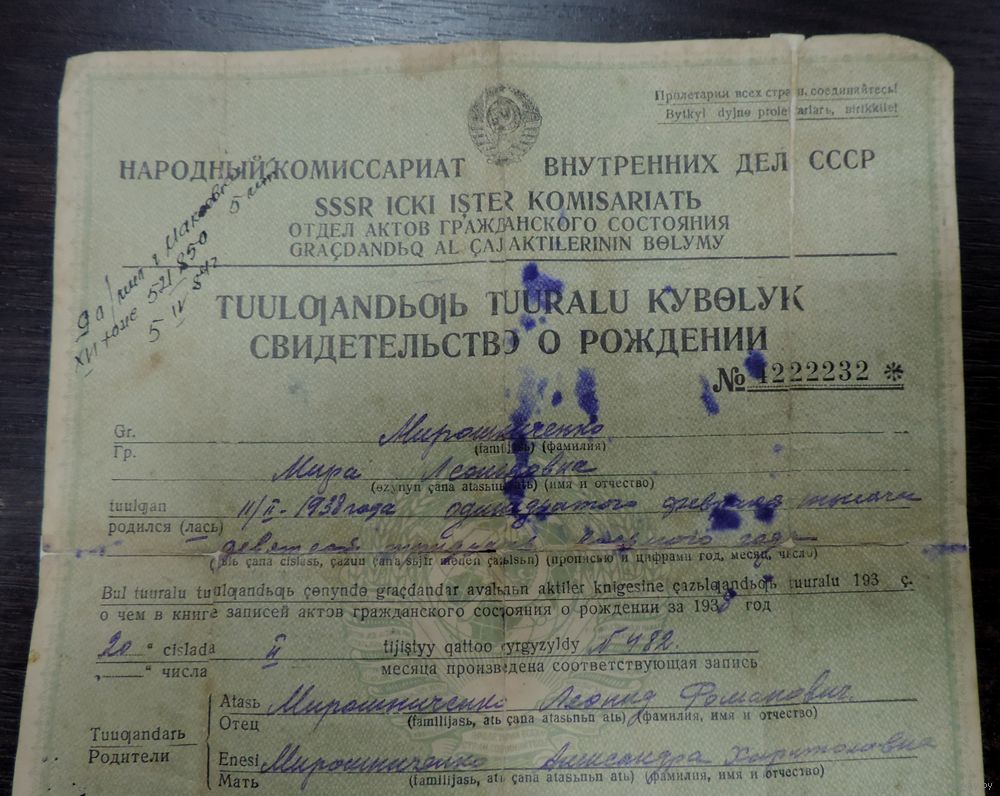 Пролетарии всех стран, соединяйтесь!
Bytkyl dyjnө proletarlarь, birikkile!
НАРОДНЫЙ КОМИССАРИАТ ВНУТРЕННИХ ДЕЛ СССР
SSSR ICKI IŞTER KOMISARIATЬ
ОТДЕЛ АКТОВ ГРАЖДАНСКОГО СОСТОЯНИЯ
GRAÇDANDЬQ AL ÇAJ AKTILERININ BӨLYMY
5 лит
521850
5 IV 54г
TUULQANDЬƢЬ TUURALU KYBӨLYK
СВИДЕТЕЛЬСТВО О РОЖДЕНИИ
№ 4222232 *
Gr. Мирошниченко
Гр. (familijasь) (фамилия)
Мира Леонидовна
(өzynyn çana atasьnьn atь) (имя и отчество)
tuulƣan 11/II-1938 года одиннадцатого февраля тысяча
родился (лась)
девятьсот тридцать восьмого года
çana cislasь, çazuu çana sьjfr menen çazьlsьn) (прописью и цифрами год, месяц, число)
Bul tuuralu tuulƣandьƣь çөnyndө graçdandar avalьnьn aktiler knigesine çazьlƣandьƣь tuuralu 193 ç.
о чем в книге записей актов гражданского состояния о рождении за 1938 год
20 “ cislada II tijiştyy qattoo çyrgyzyldy № 482.
“ числа месяца произведена соответствующая запись
Atasь Мирошниченко Леонид Романович.
Отец (familijasь, atь çana atasьnьn atь) (фамилия, имя и отчество)
Tuuƣandarь
Родители
Enesi Мирошниченко Александра Харитоновна
Мать (familijasь, atь çana atasьnьn atь) (фамилия, имя и отчество)